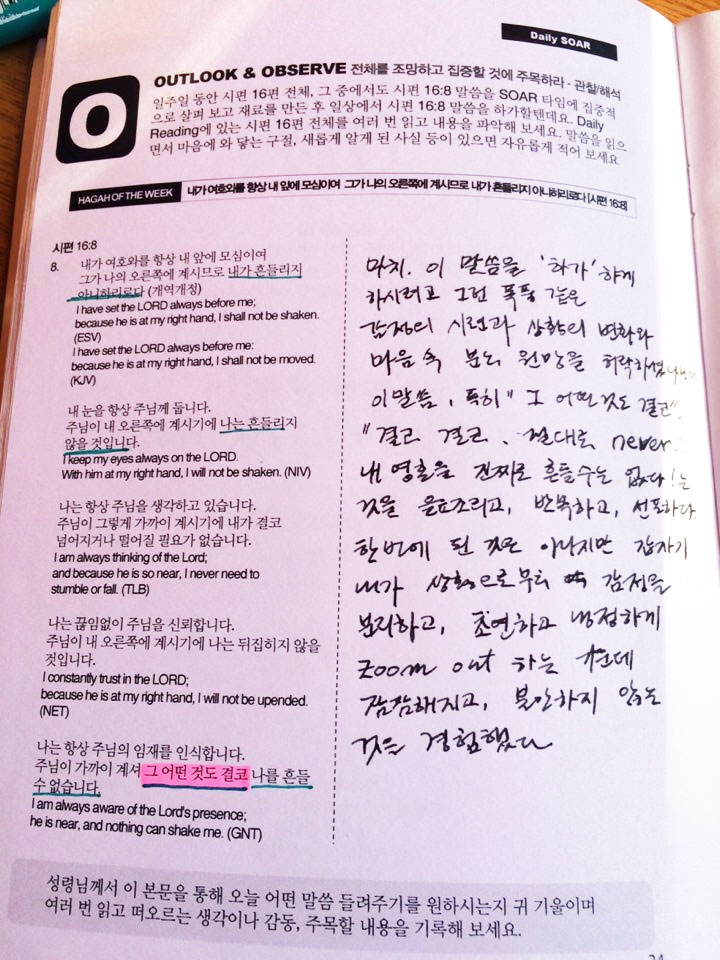 Daily SOAR
O
OUTLOOK & OBSERVE 전체를 조망하고 집중할 것에 주목하라 - 관찰/해석
일주일 동안 시편 16편 전체, 그 중에서도 시편 16:8 말씀을 SOAR 타임에 집중적
으로 살펴 보고 재료를 만든 후 일상에서 시편 16:8 말씀을 하가할텐데요. Daily
Reading에 있는 시편 16편 전체를 여러 번 읽고 내용을 파악해 보세요. 말씀을 읽으
면서 마음에 와 닿는 구절, 새롭게 알게 된 사실 등이 있으면 자유롭게 적어 보세요
HAGAH OF THE WEEK 내가 여호와를 항상 내 앞에 모심이여 그가 나의 오른쪽에 계시므로 내가 흔들리지 아니하리로다 [시편 16:8]
시편 16:8
8. 내가 여호와를 항상 내 앞에 모심이여
그가 나의 오른쪽에 계시므로 내가 흔들리지
아니하리로다 (개역개정)
I have set the LORD always before me;
because he is at my right hand, I shall not be shaken.
(ESV)
I have set the LORD always before me:
because he is at my right hand, I shall not be moved.
(KJV)
내 눈을 항상 주님께 둡니다.
주님이 내 오른쪽에 계시기에 나는 흔들리지
않을 것입니다.
I keep my eyes always on the LORD.
With him at my right hand, I will not be shaken. (NIV)
나는 항상 주님을 생각하고 있습니다.
주님이 그렇게 가까이 계시기에 내가 결코
넘어지거나 떨어질 필요가 없습니다.
I am always thinking of the Lord;
and because he is so near, I never need to
stumble or fall. (TLB)
나는 끊임없이 주님을 신뢰합니다.
주님이 내 오른쪽에 계시기에 나는 뒤집히지 않을
것입니다.
I constantly trust in the LORD;
because he is at my right hand, I will not be upended.
(NET)
나는 항상 주님의 임재를 인식합니다.
주님이 가까이 계셔 그 어떤 것도 결코 나를 흔들
수 없습니다.
I am always aware of the Lord's presence;
he is near, and nothing can shake me. (GNT)
마치. 이 말씀을 '하가' 하게
하시려고 그런 폭풍 같은
감정의 시련과 상황의 변화와
마음 속 분노 원망을 허락하셨나
이 말씀, 특히 "그 어떤 것도 결코".
"결코 결코, 절대로 never
내 영혼을 진짜로 흔들 수는 없다!는
것을 읊조리고, 반복하고, 선포하다
한번에 된 것은 아니지만 갑자기
내가 상황으로부터 감정을
분리하고, 초연하고 냉정하게
zoom out 하는 가운데
잠잠해지고, 불안하지 않는
것을 경험했다
성령님께서 이 본문을 통해 오늘 어떤 말씀 들려주기를 원하시는지 귀 기울이며
여러 번 읽고 떠오르는 생각이나 감동, 주목할 내용을 기록해 보세요.